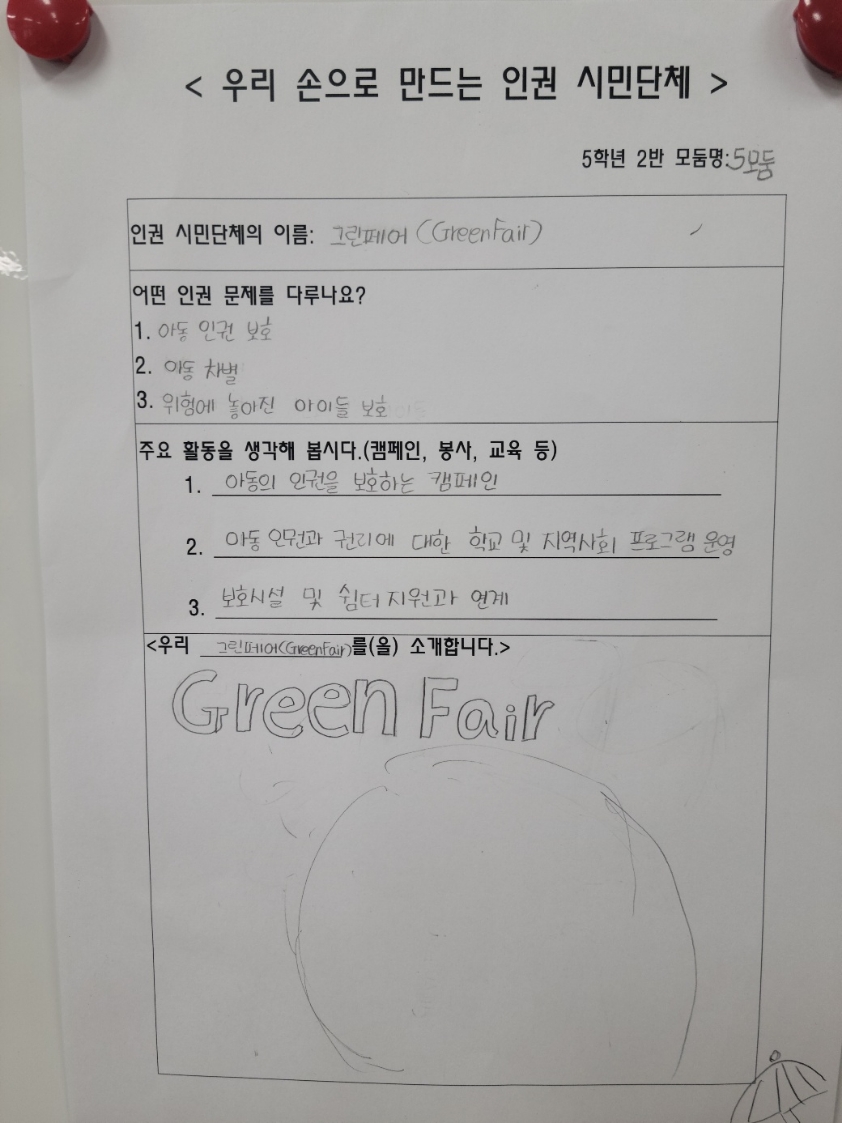 < 우리 손으로 만드는 인권 시민단체 >
5학년 2반 모둠명:5모둠
인권 시민단체의 이름: 그린페어(GreenFair)
어떤 인권 문제를 다루나요?
1. 아동 인권 보호
2. 아동 차별
3. 위험에 놓아진 아이들 보호
주요 활동을 생각해 봅시다.(캠페인, 봉사, 교육 등)
1. 아동의 인권을 보호하는 캠페인
2. 아동 인권과 권리에 대한 학교 및 지역사회 프로그램 운영
3. 보호시설 및 쉼터 지원과 연계
<우리 그린페어(GreenFair)를(을) 소개합니다.>
Green Fair